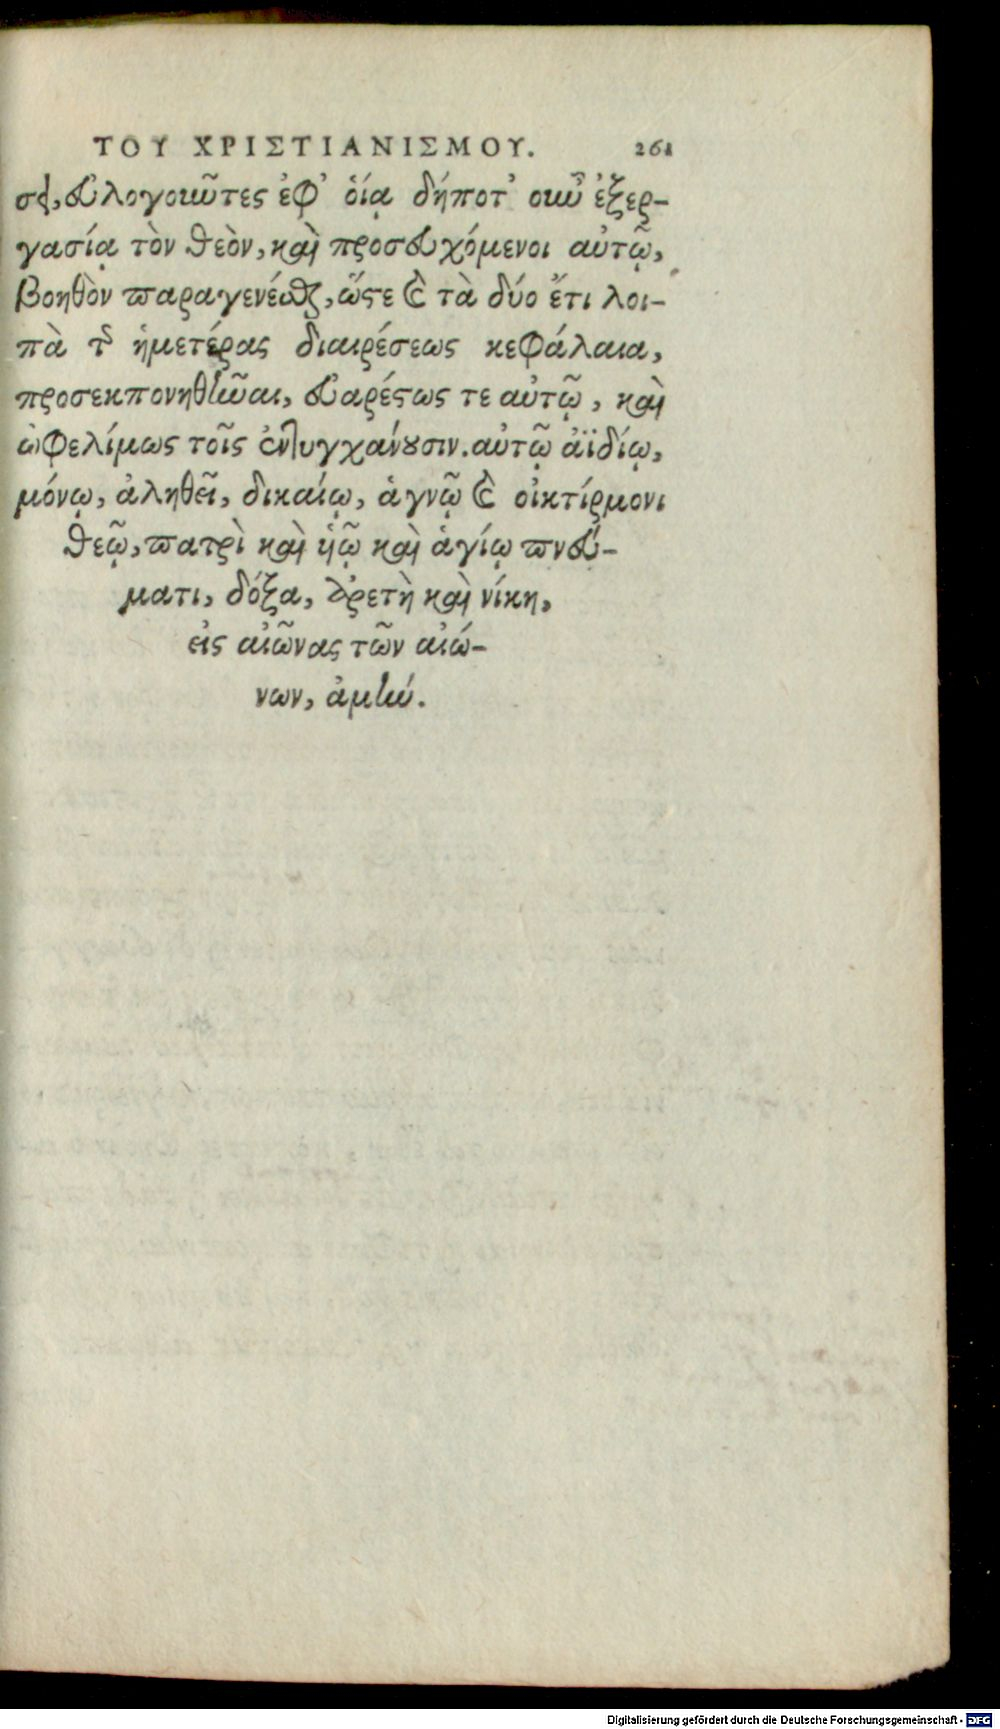 ΤΟΥ ΧΡΙΣΤΙΑΝΙΣΜΟΥ. 261
εὐλογοιῶτες ἐφ' ὁίᾳ δήποτ' οιῶ ἐξερ-
γασίᾳ τὸν θεὸν, καὶ προσευχόμενοι αὐτῷ,
βοηθὸν παραγενέσθαι, ὥστε καὶ τὰ δύο ἔτι λοι-
πὰ τῆς ἡμετέρας διαιρέσεως κεφάλαια,
προσεκπονηθῆναι, εὐαρέστως τε αὐτῷ, καὶ
ὠφελίμως τοῖς ἐντυγχάνουσιν. αὐτῷ ἀϊδίῳ,
μόνῳ, ἀληθεῖ, δικαίῳ, ἁγνῷ καὶ οἰκτίρμονι
θεῷ, πατρὶ καὶ ἡῷ καὶ ἁγίῳ πνεύ-
ματι, δόξα, ἀρετὴ καὶ νίκη,
εἰς αἰῶνας τῶν αἰώ-
νων, ἀμήν.
Digitalisierung gefördert durch die Deutsche Forschungsgemeinschaft - DFG